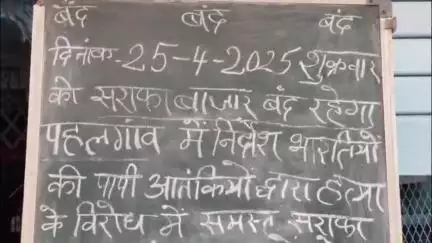 बंद बंद बंद
दिनांक-25-4-2025 शुक्रवार
को सराफा बाजार बंद रहेगा
पहलगांव में निर्दोष भारतियों
की पापी आतंकियों द्वारा हत्या
के विरोध में समस्त सराफा